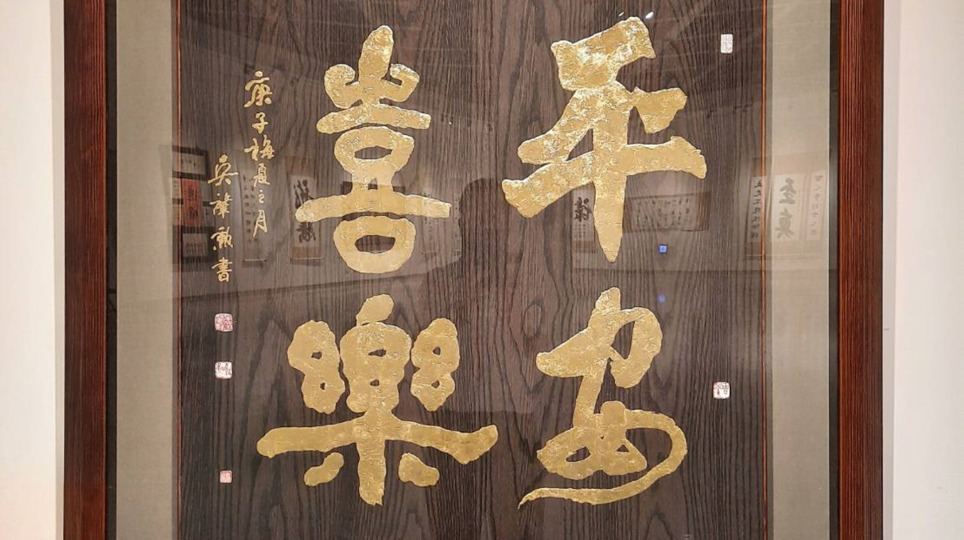 平安
喜樂
庚子梅夏之月
吳肇勳書